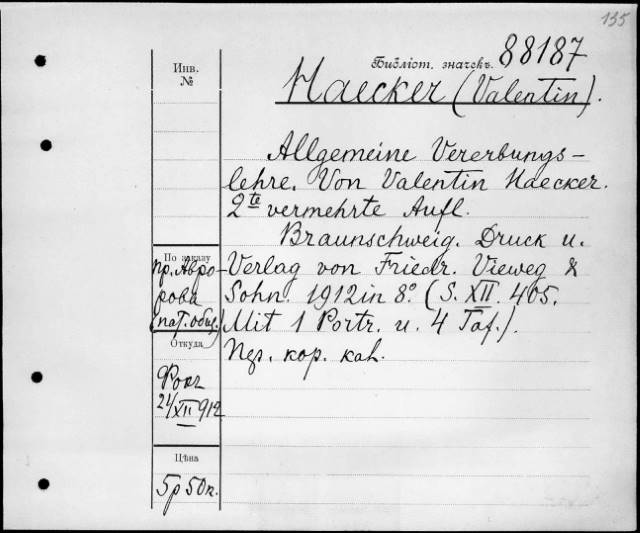 135
Библіот. значекъ. 88187
Инв.
№
Haecker (Valentin).
Allgemeine Vererbungs-
lehre. Von Valentin Haecker.
2te vermehrte Aufl.
Braunschweig. Druck u.
Verlag von Friedr. Vieweg &
Sohn. 1912 in 8°. (S. XII. 405.
Mit 1 Portr. u. 4 Taf.).
кор. kah.
По заказу
пр. Авро-
рова
(пат. общ.)
Откуда
21/XII 912
Цѣна
5р 50к.